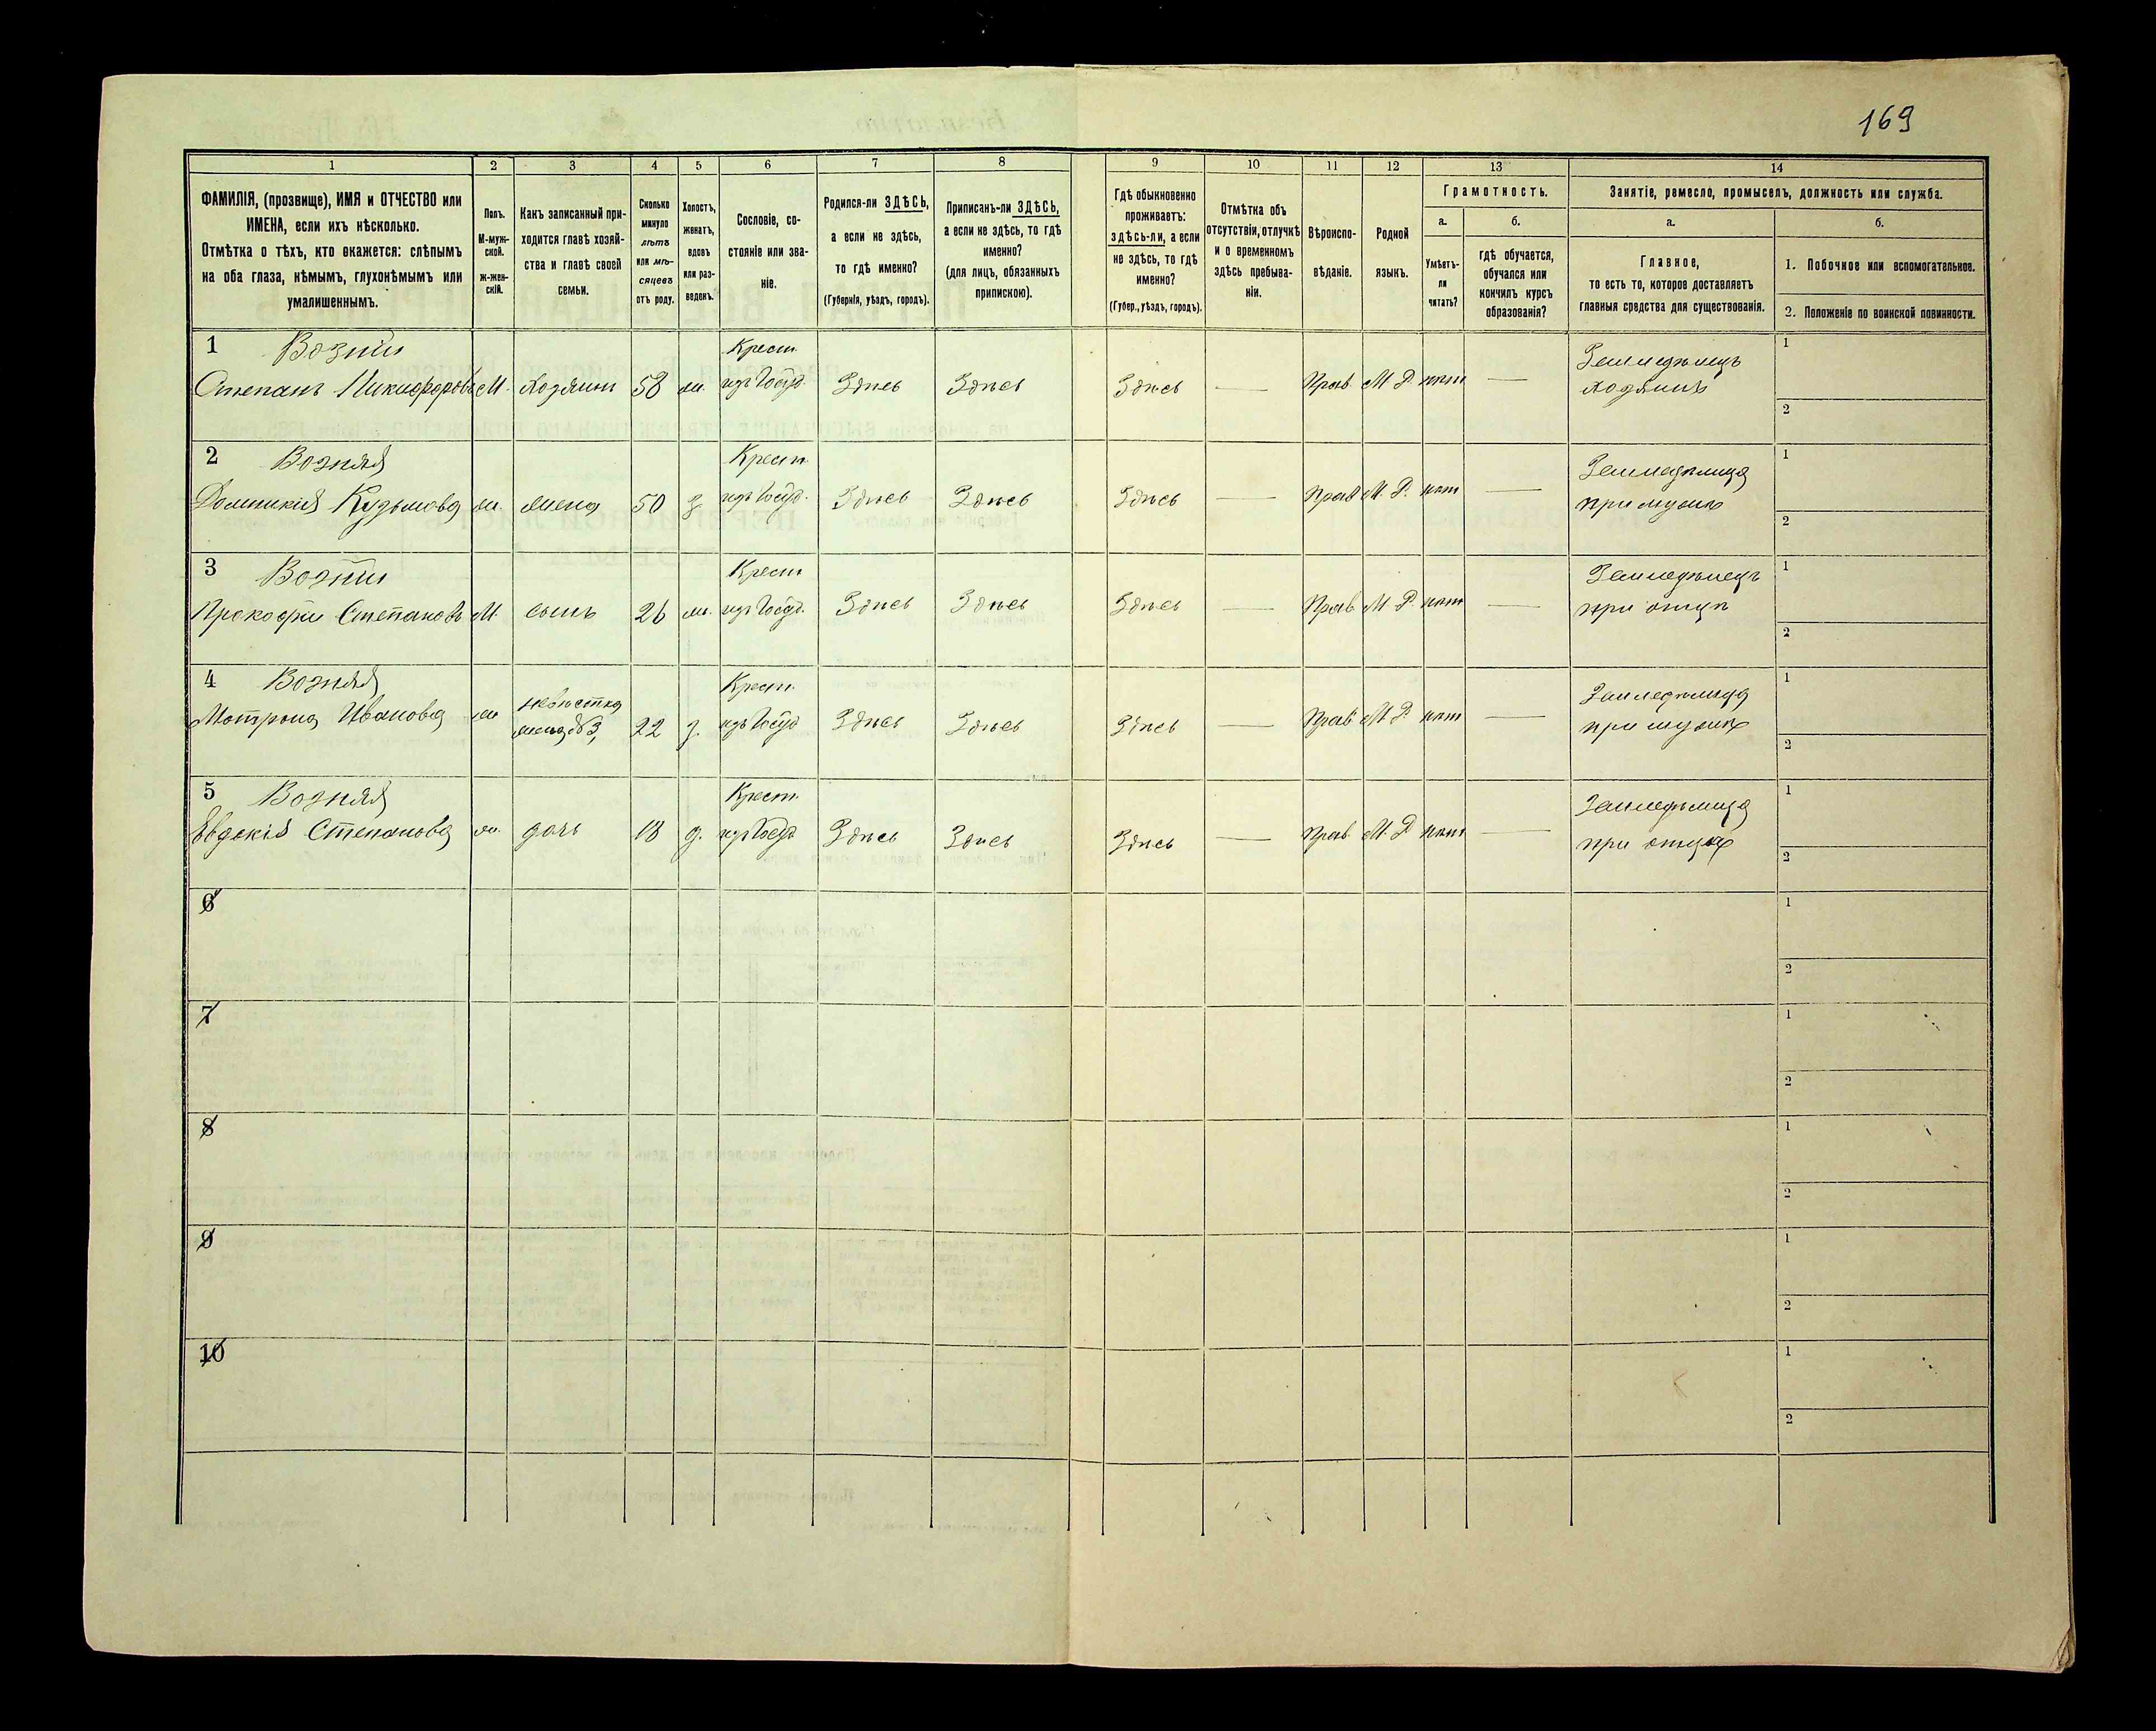 169
1
2
3
4
5
6
7
8
9
10
11
12
13
14
ФАМИЛІЯ, (прозвище), ИМЯ и ОТЧЕСТВО или
ИМЕНА, если ихъ нѣсколько.
Отмѣтка о тѣхъ, кто окажется: слѣпымъ
на оба глаза, нѣмымъ, глухонѣмымъ или
умалишеннымъ.
Полъ.
М-муж-
ской.
ж-жен-
скій.
Какъ записанный при-
ходится главѣ хозяй-
ства и главѣ своей
семьи.
Сколько
минуло
лѣтъ
или мѣ-
сяцевъ
отъ роду.
Холостъ,
женатъ,
вдовъ
или раз-
веденъ.
Сословіе, со-
стояніе или зва-
ніе.
Родился-ли ЗДѢСЬ,
а если не здѣсь,
то гдѣ именно?
(Губернія, уѣздъ, городъ).
Приписанъ-ли ЗДѢСЬ,
а если не здѣсь, то гдѣ
именно?
(для лицъ, обязанныхъ
припискою).
Гдѣ обыкновенно
проживаетъ:
здѣсь-ли, а если
не здѣсь, то гдѣ
именно?
(Губер., уѣздъ, городъ).
Отмѣтка объ
отсутствіи, отлучкѣ
и о временномъ
здѣсь пребыва-
ніи.
Вѣроиспо-
вѣданіе.
Родной
языкъ.
Грамотность.
а.
Умѣетъ-
ли
читать?
б.
гдѣ обучается,
обучался или
кончилъ курсъ
образованія?
Занятіе, ремесло, промыселъ, должность или служба.
а.
Главное,
то есть то, которое доставляетъ
главныя средства для существованія.
б.
1. Побочное или вспомогательное.
2. Положеніе по воинской повинности.
1 Возній Крест. Земледѣлецъ 1
Степанъ Никифоровъ М. Хозяинъ 58 ж. изъ Госуд. Здѣсь Здѣсь Здѣсь — Прав М Р нѣтъ — хозяинъ
2
2 Возняя Крест. Земледѣлица 1
Домникія Кузьмова ж. жена 50 з изъ Госуд. Здѣсь Здѣсь Здѣсь — Прав М. Р. нѣт — при мужѣ
2
3 Возній Крест Земледѣлецъ 1
Прокофій Степановъ М. сынъ 26 ж. изъ Госуд. Здѣсь Здѣсь Здѣсь — Прав М Р. нѣт — при отцѣ
2
4 Возняя невѣстка Крест. Земледѣлица 1
Мотрона Иванова ж жена №3, 22 з. изъ Госуд Здѣсь Здѣсь Здѣсь — Прав М Р нѣт — при мужѣ
2
5 Возняя Крест. Земледѣлица 1
Евдокія Степанова ж. дочь 18 д. изъ Госуд Здѣсь Здѣсь Здѣсь — Прав М. Р нѣт — при отцѣ
2
6 1
2
7 1
2
8 1
2
9 1
2
10 1
2